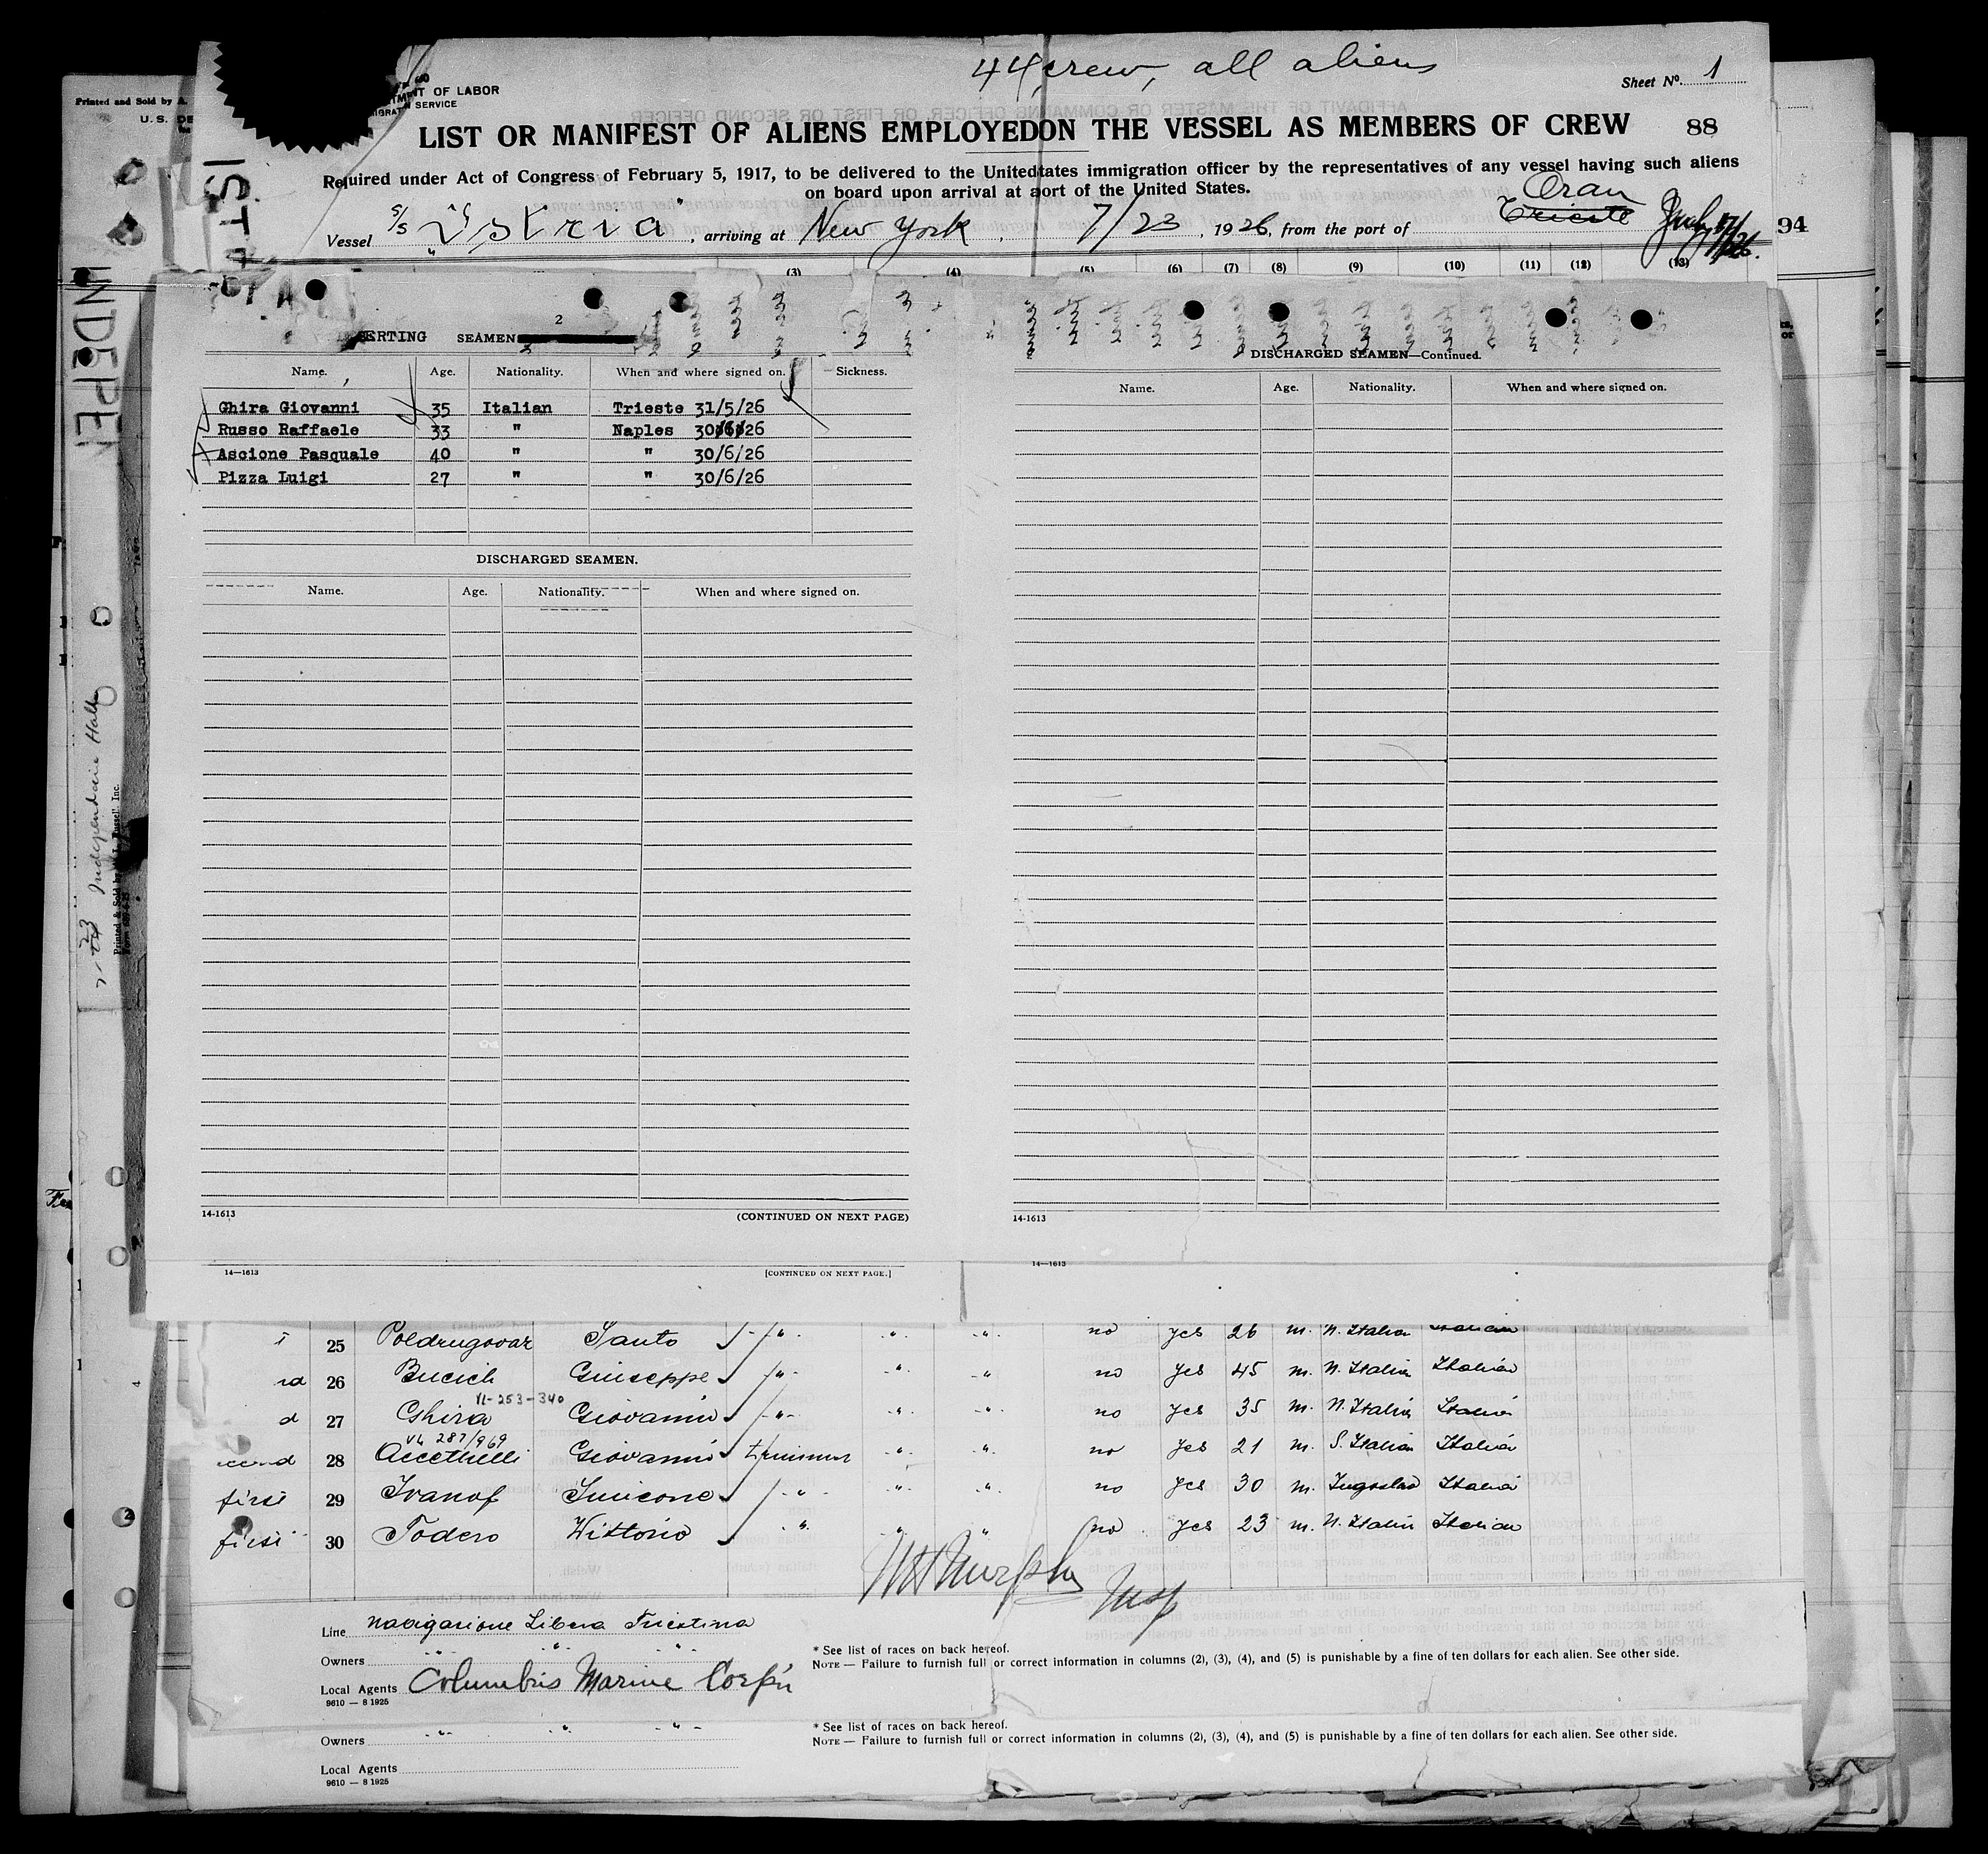 44 crew, all aliens
Sheet No. 1
T OF LABOR
SERVICE
Printed and Sold by A.
U.S. DE
LIST OR MANIFEST OF ALIENS EMPLOYEDON THE VESSEL AS MEMBERS OF CREW
88
Required under Act of Congress of February 5, 1917, to be delivered to the Unitedtates immigration officer by the representatives of any vessel having such aliens
on board upon arrival at aort of the United States.
Oran
Vessel S/S "Istria", arriving at New York, 7/23, 1926, from the port of Trieste
94
(3) (4) (5) (6) (7) (8) (9) (10) (11) (12) (13)
INDEPEN
ERTING SEAMEN
2
Name. Age. Nationality. When and where signed on. Sickness.
Ghira Giovanni 35 Italian Trieste 31/5/26
Russo Raffaele 33 " Naples 30/6/26
Ascione Pasquale 40 " " 30/6/26
Pizza Luigi 27 " " 30/6/26
DISCHARGED SEAMEN.
Name. Age. Nationality. When and where signed on.
14-1613
(CONTINUED ON NEXT PAGE)
DISCHARGED SEAMEN—Continued.
Name. Age. Nationality. When and where signed on.
14-1613
14—1613
[CONTINUED ON NEXT PAGE.]
14—1613
25 Poldrugovaz Santo " " " no yes 26 m. N. Italian Italian
26 Bucich Giuseppe " " " no yes 45 m. N. Italia Italian
VL-253-340
27 Ghira Giovanni " " " no yes 35 m. N. Italia Italia
VL 287/969
28 Giovanni trimmer " " no yes 21 m. S. Italian Italia
first 29 Ivanof Simeone " " " no yes 30 m. Jugoslav Italia
first 30 Todero Vittorio " " " no yes 23 m. N. Italia Italian
Insp
Line Navigazione Libera Triestina
Owners " " "
Local Agents Columbus Marine Corp'n
9610 — 8 1925
* See list of races on back hereof.
NOTE — Failure to furnish full or correct information in columns (2), (3), (4), and (5) is punishable by a fine of ten dollars for each alien. See other side.
Owners " " "
Local Agents
9610 — 8 1925
* See list of races on back hereof.
NOTE — Failure to furnish full or correct information in columns (2), (3), (4), and (5) is punishable by a fine of ten dollars for each alien. See other side.
Independence Hall